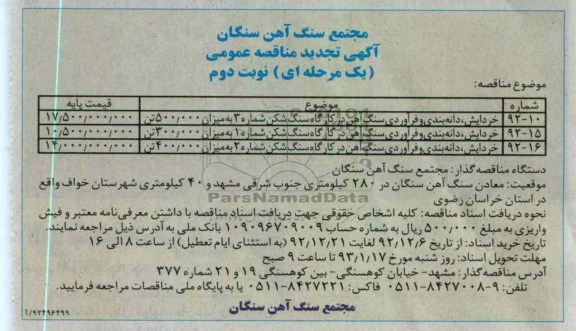 مجتمع سنگ آهن سنگان
آگهی تجدید مناقصه عمومی
(یک مرحله ای) نوبت دوم
موضوع مناقصه:
شماره موضوع قیمت پایه
۹۲-۱۰ خردایش، دانه‌بندی و فرآوری سنگ آهن در کارگاه سنگ شکن شماره ۳ به میزان ۵۰۰/۰۰۰ تن ۱۷/۵۰۰/۰۰۰/۰۰۰
۹۲-۱۵ خردایش، دانه‌بندی و فرآوری سنگ آهن در کارگاه سنگ شکن شماره ۱ به میزان ۳۰۰/۰۰۰ تن ۱۰/۵۰۰/۰۰۰/۰۰۰
۹۲-۱۶ خردایش، دانه‌بندی و فرآوری سنگ آهن در کارگاه سنگ شکن شماره ۲ به میزان ۴۰۰/۰۰۰ تن ۱۴/۰۰۰/۰۰۰/۰۰۰
دستگاه مناقصه گذار: مجتمع سنگ آهن سنگان
موقعیت: معادن سنگ آهن سنگان در ۲۸۰ کیلومتری جنوب شرقی مشهد و ۴۰ کیلومتری شهرستان خواف واقع
در استان خراسان رضوی
نحوه دریافت اسناد مناقصه: کلیه اشخاص حقوقی جهت دریافت اسناد مناقصه با داشتن معرفی‌نامه معتبر و فیش
واریزی به مبلغ ۵۰۰/۰۰۰ ریال به شماره حساب ۰۱۰۹۰۹۶۷۰۹۰۰۹ بانک ملی به آدرس ذیل مراجعه نمایند.
تاریخ خرید اسناد: از تاریخ ۹۲/۱۲/۶ لغایت ۹۲/۱۲/۲۱ (به استثنای ایام تعطیل) از ساعت ۸ الی ۱۶
مهلت تحویل اسناد: روز شنبه مورخ ۹۳/۱/۱۷ تا ساعت ۹ صبح
آدرس مناقصه گذار: مشهد- خیابان کوهسنگی- بین کوهسنگی ۱۹ و ۲۱ شماره ۳۷۷
تلفن: ۹-۸۴۲۷۰۰۸-۰۵۱۱ فاکس: ۸۴۲۷۲۲۱-۰۵۱۱ یا به پایگاه ملی مناقصات مراجعه فرمایید.
مجتمع سنگ آهن سنگان
ParsNamadData
۱/۹۲۴۹۶۴۹۹